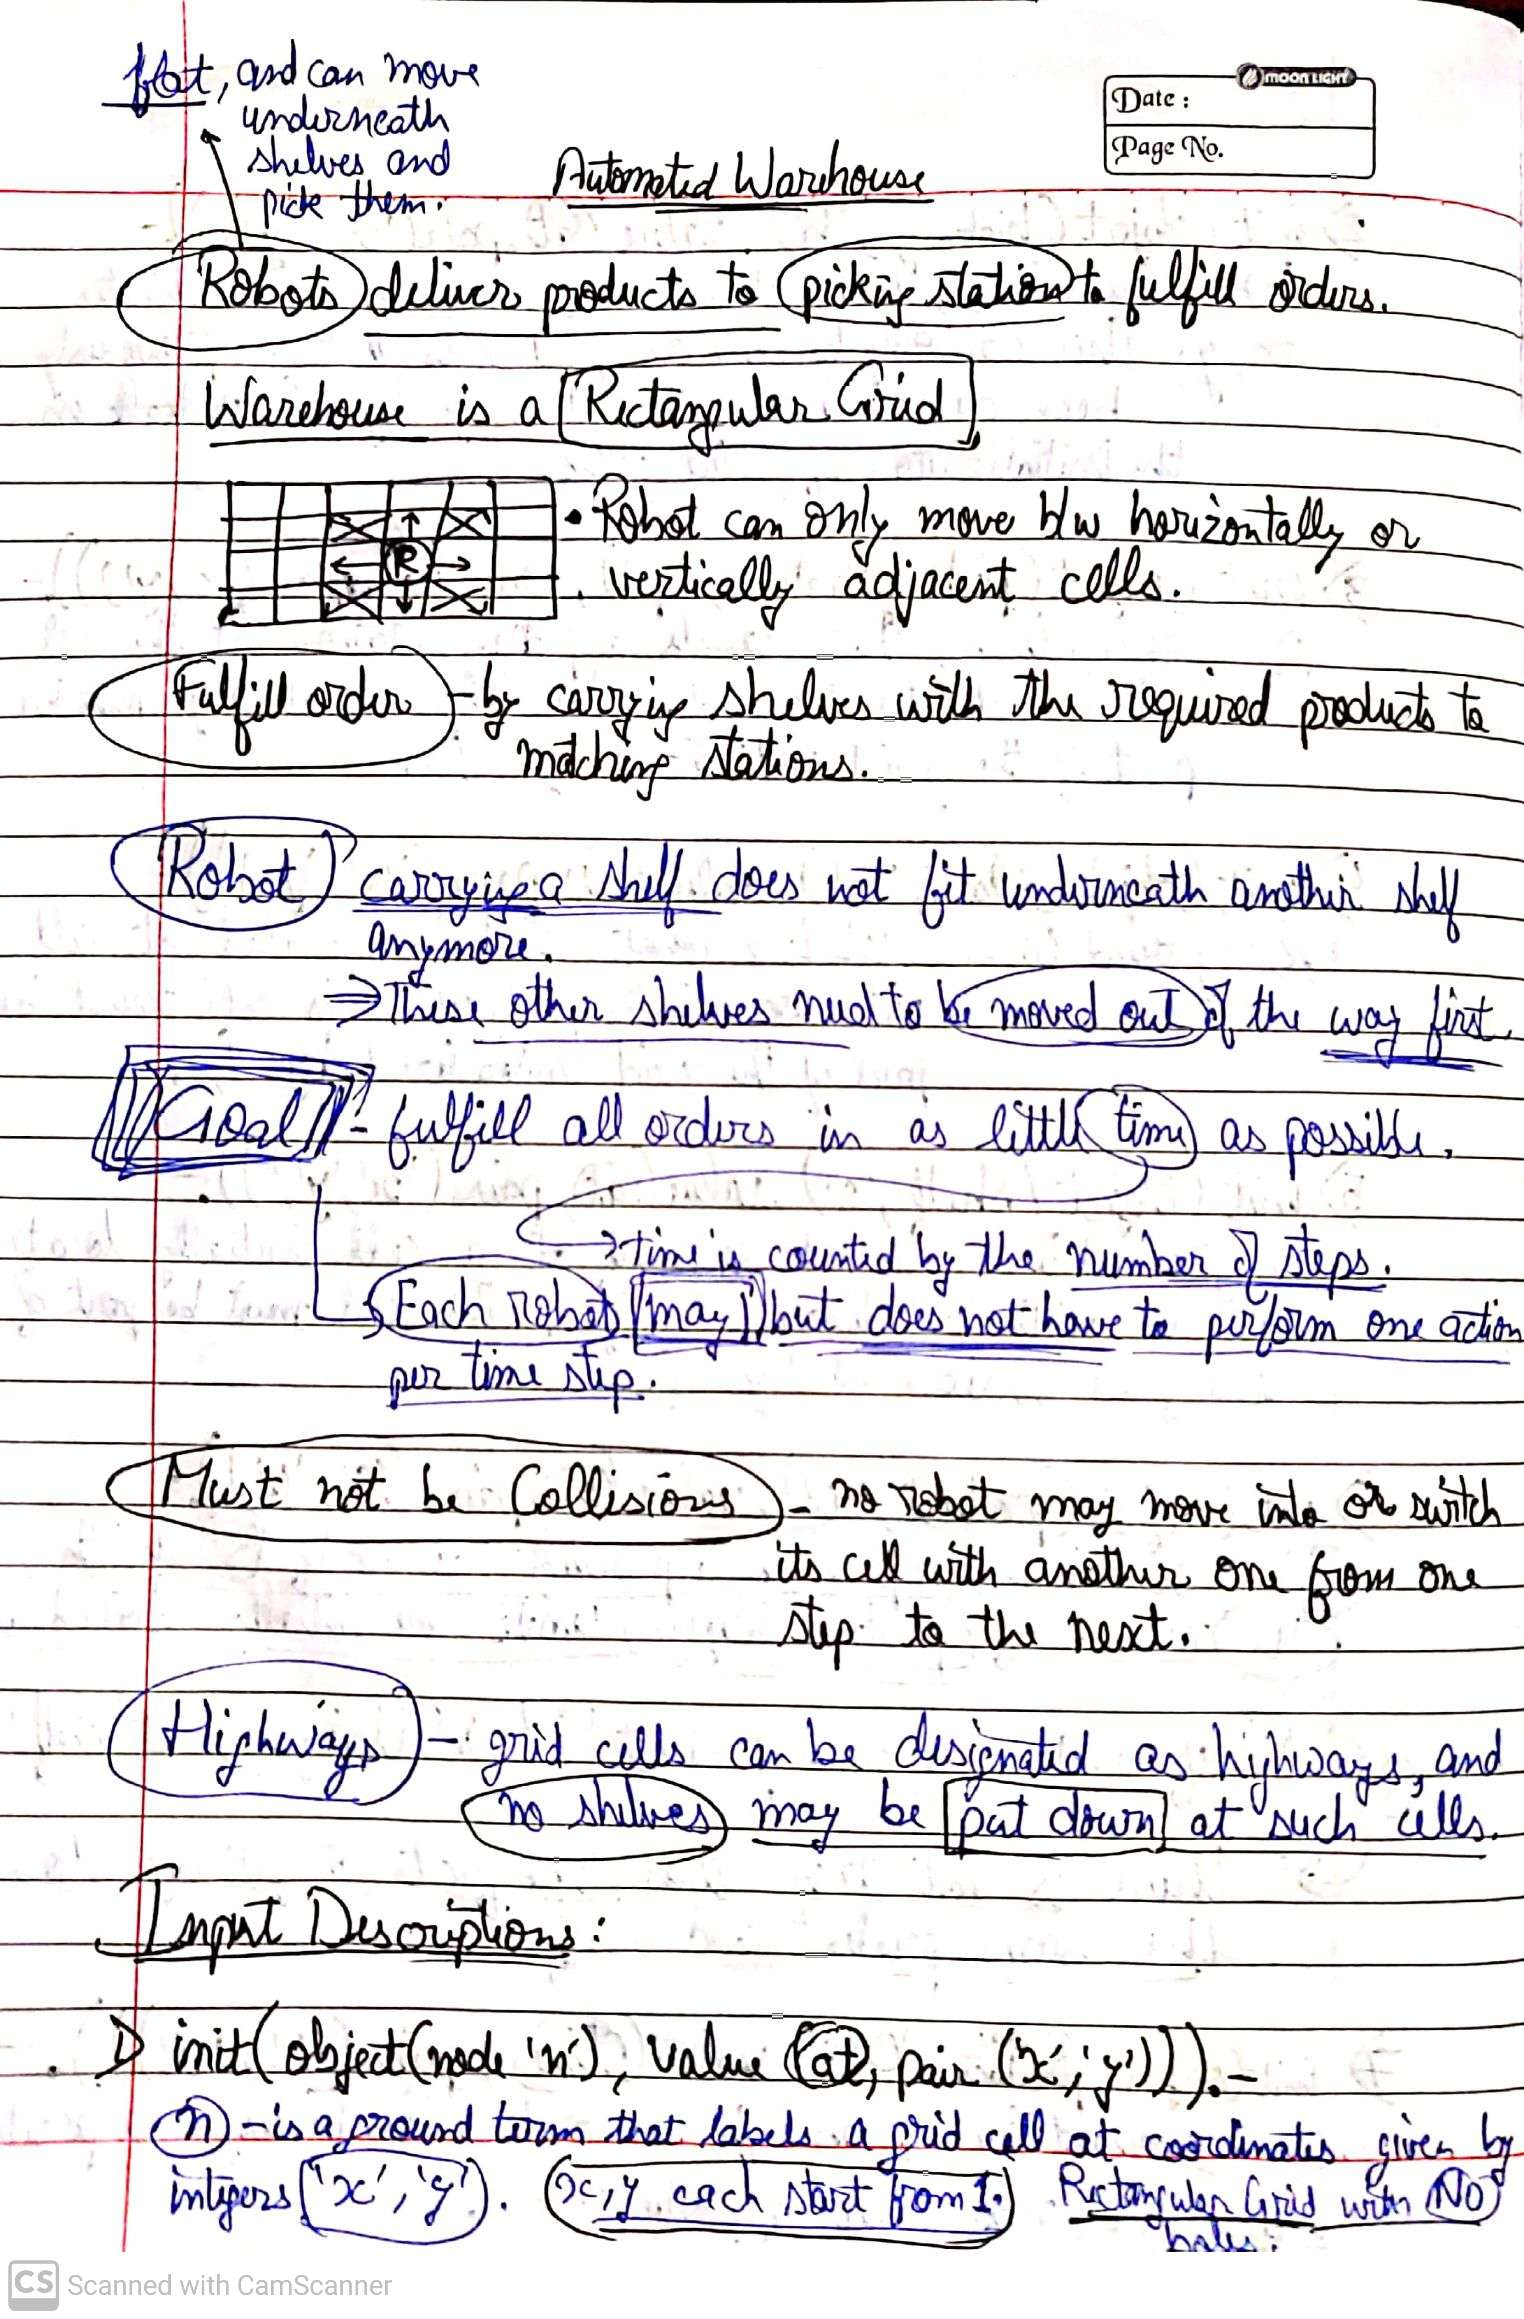 flat, and can move
underneath
shelves and
pick them.
MOONLIGHT
Date :
Page No.
Automated Warehouse
Robots deliver products to picking station to fulfill orders.
Warehouse is a Rectangular Grid
• Robot can only move b/w horizontally or
vertically adjacent cells.
R
Fulfill order - by carrying shelves with the required products to
matching stations.
Robot carrying a shelf does not fit underneath another shelf
anymore.
⇒ These other shelves need to be moved out of the way first.
Goal - fulfill all orders in as little time as possible.
→ time is counted by the number of steps.
Each robot may but does not have to perform one action
per time step.
Must not be Collisions - no robot may move into or switch
its cell with another one from one
step to the next.
Highways - grid cells can be designated as highways, and
no shelves may be put down at such cells.
Input Descriptions :
1) init(object(node 'n'), value (at, pair ('x','y'))). -
n - is a ground term that labels a grid cell at coordinates given by
integers 'x', 'y'. x,y each start from 1. Rectangular Grid with NO
holes.
CS Scanned with CamScanner